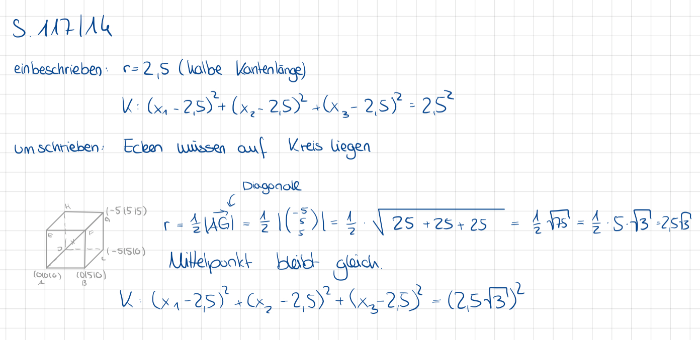 S. 117/14
einbeschrieben: r = 2,5 (halbe Kantenlänge)
K: (x₁ - 2,5)² + (x₂ - 2,5)² + (x₃ - 2,5)² = 2,5²
umschrieben: Ecken müssen auf Kreis liegen
Diagonale
H (-5|5|5)
G
E F
r = ½ |AG→| = ½ |(-5 5 5)| = ½ · √25 + 25 + 25 = ½ √75 = ½ · 5 · √3 = 2,5√3
D (-5|5|0)
C
Mittelpunkt bleibt gleich.
(0|0|0) (0|5|0)
A B
K: (x₁ - 2,5)² + (x₂ - 2,5)² + (x₃ - 2,5)² = (2,5√3)²